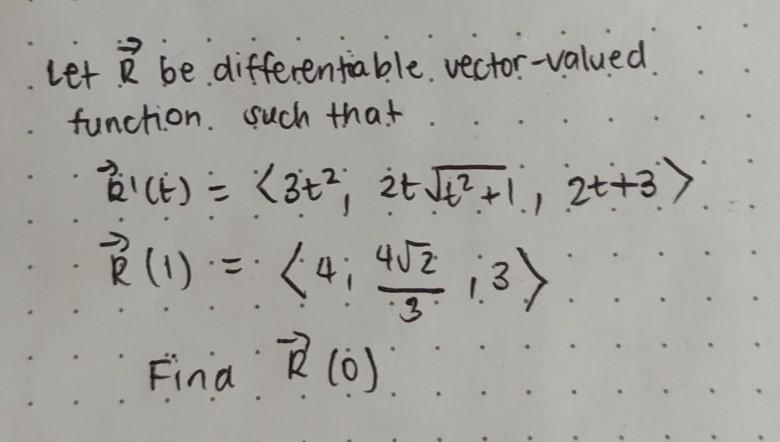 Let R⃗ be differentiable vector-valued
function. such that
R⃗'(t) = ⟨3t², 2t√(t²+1), 2t+3⟩
R⃗(1) = ⟨4, 4√2/3, 3⟩
Find R⃗(0)